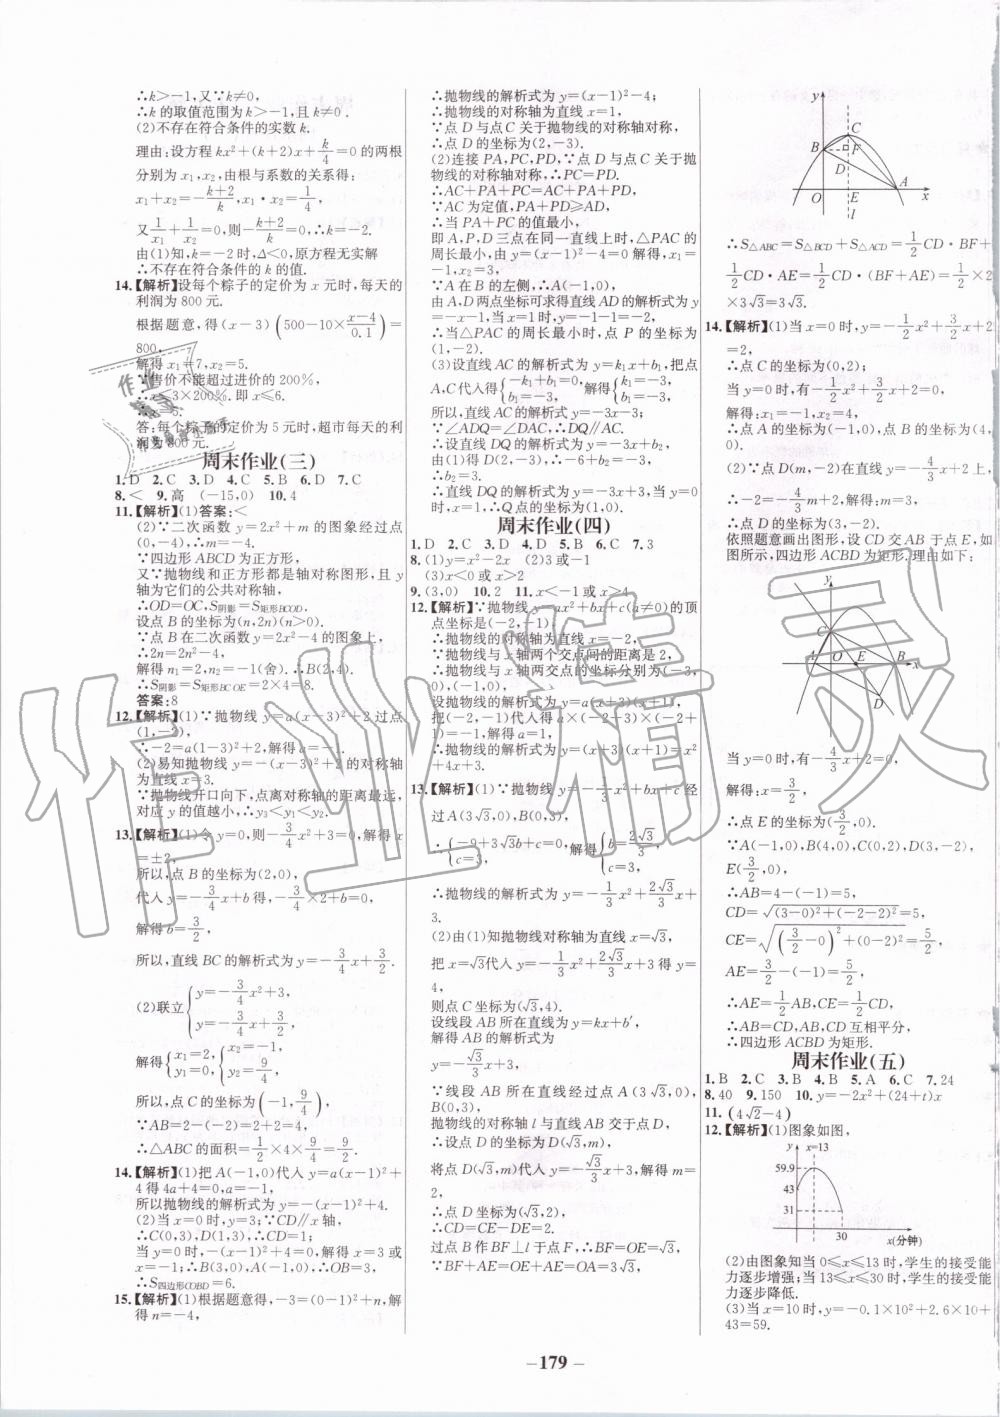 ∴k>-1,又∵k≠0,
∴k的取值范围为k>-1,且k≠0.
(2)不存在符合条件的实数k.
理由:设方程kx²+(k+2)x+k/4=0的两根
分别为x₁,x₂,由根与系数的关系得:
x₁+x₂=-(k+2)/k,x₁·x₂=1/4,
又1/x₁+1/x₂=0,则-(k+2)/k=0,∴k=-2.
由(1)知,k=-2时,Δ<0,原方程无实解
∴不存在符合条件的k的值.
14.【解析】设每个粽子的定价为x元时,每天的
利润为800元.
根据题意,得(x-3)(500-10×(x-4)/0.1)=
800,
解得x₁=7,x₂=5.
∵售价不能超过进价的200%,
∴x≤3×200%.即x≤6.
∴x=5.
答:每个粽子的定价为5元时,超市每天的
利润为800元.
周末作业(三)
1.D 2.C 3.D 4.C 5.B 6.D 7.C
8.< 9.高 (-15,0) 10.4
11.【解析】(1)答案:<
(2)∵二次函数y=2x²+m的图象经过点
(0,-4),∴m=-4,
∵四边形ABCD为正方形,
又∵抛物线和正方形都是轴对称图形,且y
轴为它们的公共对称轴,
∴OD=OC,S阴影=S矩形BCOE,
设点B的坐标为(n,2n)(n>0).
∵点B在二次函数y=2x²-4的图象上,
∴2n=2n²-4,
解得n₁=2,n₂=-1(舍).∴B(2,4).
∴S阴影=S矩形BCOE=2×4=8.
答案:8
12.【解析】(1)∵抛物线y=a(x-3)²+2过点
(1,-2),
∴-2=a(1-3)²+2,解得a=-1.
(2)易知抛物线y=-(x-3)²+2的对称轴
为直线x=3.
∵抛物线开口向下,点离对称轴的距离越远,
对应y的值越小,∴y₃<y₁<y₂.
13.【解析】(1)令y=0,则-3/4x²+3=0,解得x
=±2,
所以,点B的坐标为(2,0),
代入y=-3/4x+b得,-3/4×2+b=0,
解得b=3/2,
所以,直线BC的解析式为y=-3/4x+3/2.
(2)联立{y=-3/4x²+3,
y=-3/4x+3/2,
解得{x₁=2, y₁=0, {x₂=-1, y₂=9/4,
所以,点C的坐标为(-1,9/4),
∵AB=2-(-2)=2+2=4,
∴△ABC的面积=1/2×4×9/4=9/2.
14.【解析】(1)把A(-1,0)代入y=a(x-1)²+
4得4a+4=0,a=-1,
所以抛物线的解析式为y=-(x-1)²+4.
(2)当x=0时,y=3;∵CD∥x轴,
∴C(0,3),D(1,3),∴CD=1;
当y=0时,-(x-1)²+4=0,解得x=3或
x=-1;∴B(3,0),A(-1,0),∴OB=3;
∴S四边形COBD=6.
15.【解析】(1)根据题意得,-3=(0-1)²+n,解
得n=-4,
∴抛物线的解析式为y=(x-1)²-4;
∴抛物线的对称轴为直线x=1,
∵点D与点C关于抛物线的对称轴对称,
∴点D的坐标为(2,-3).
(2)连接PA,PC,PD,∵点D与点C关于抛
物线的对称轴对称,∴PC=PD.
∴AC+PA+PC=AC+PA+PD,
∵AC为定值,PA+PD≥AD,
∴当PA+PC的值最小,
即A,P,D三点在同一直线上时,△PAC的
周长最小,由y=(x-1)²-4=0解得,x₁=
-1,x₂=3,
∵A在B的左侧,∴A(-1,0),
由A,D两点坐标可求得直线AD的解析式为y
=-x-1,当x=1时,y=-1-1=-2,
∴当△PAC的周长最小时,点P的坐标为
(1,-2).
(3)设直线AC的解析式为y=k₁x+b₁,把点
A,C代入得{-k₁+b₁=0, b₁=-3, 解得{k₁=-3, b₁=-3.
所以,直线AC的解析式为y=-3x-3;
∵∠ADQ=∠DAC,∴DQ∥AC.
∴设直线DQ的解析式为y=-3x+b₂,
由(1)得D(2,-3),∴-6+b₂=-3,
∴b₂=3.
∴直线DQ的解析式为y=-3x+3,当x=
1时,y=0.∴Q点的坐标为(1,0).
周末作业(四)
1.D 2.C 3.D 4.D 5.B 6.C 7.3
8.(1)y=x²-2x (2)3或-1
(3)x<0或x>2
9.(3,0) 10.2 11.x<-1或x>4
12.【解析】∵抛物线y=ax²+bx+c(a≠0)的顶
点坐标是(-2,-1),
∴抛物线的对称轴为直线x=-2,
∵抛物线与x轴两个交点间的距离是2,
∴抛物线与x轴两交点的坐标分别为(-3,
0),(-1,0).
设抛物线的解析式为y=a(x+3)(x+1),
把(-2,-1)代入得a×(-2+3)×(-2+
1)=-1,解得a=1,
∴抛物线的解析式为y=(x+3)(x+1)=x²
+4x+3.
13.【解析】(1)∵抛物线y=-1/3x²+bx+c经
过A(3√3,0),B(0,3),
∴{-9+3√3b+c=0, c=3, 解得{b=2√3/3, c=3,
∴抛物线的解析式为y=-1/3x²+2√3/3x+
3.
(2)由(1)知抛物线对称轴为直线x=√3,
把x=√3代入y=-1/3x²+2√3/3x+3得y=
4,
则点C坐标为(√3,4),
设线段AB所在直线为y=kx+b′,
解得AB的解析式为
y=-√3/3x+3,
∵线段AB所在直线经过点A(3√3,0),
B(0,3),
抛物线的对称轴l与直线AB交于点D,
∴设点D的坐标为D(√3,m),
将点D(√3,m)代入y=-√3/3x+3,解得m=
2,
∴点D坐标为(√3,2),
∴CD=CE-DE=2.
过点B作BF⊥l于点F,∴BF=OE=√3,
∵BF+AE=OE+AE=OA=3√3,
y
C
B
F
D
A
O E x
l
∴S△ABC=S△BCD+S△ACD=1/2CD·BF+
1/2CD·AE=1/2CD·(BF+AE)=1/2×2
×3√3=3√3.
14.【解析】(1)当x=0时,y=-1/2x²+3/2x+2
=2,
∴点C的坐标为(0,2);
当y=0时,有-1/2x²+3/2x+2=0,
解得:x₁=-1,x₂=4.
∴点A的坐标为(-1,0),点B的坐标为(4,
0).
(2)∵点D(m,-2)在直线y=-4/3x+2上,
∴-2=-4/3m+2,解得:m=3,
∴点D的坐标为(3,-2).
依照题意画出图形,设CD交AB于点E,如
图所示,四边形ACBD为矩形.理由如下:
y
C
A O E B x
D
当y=0时,有-4/3x+2=0,
解得:x=3/2,
∴点E的坐标为(3/2,0).
∵A(-1,0),B(4,0),C(0,2),D(3,-2),
E(3/2,0),
∴AB=4-(-1)=5,
CD=√((3-0)²+(-2-2)²)=5,
CE=√((3/2-0)²+(0-2)²)=5/2,
AE=3/2-(-1)=5/2,
∴AE=1/2AB,CE=1/2CD,
∴AB=CD,AB、CD互相平分,
∴四边形ACBD为矩形.
周末作业(五)
1.B 2.C 3.B 4.B 5.A 6.C 7.24
8.40 9.150 10.y=-2x²+(24+t)x
11.(4√2-4)
12.【解析】(1)图象如图,
y x=13
59.9
43
31
30 x(分钟)
(2)由图象知当0≤x≤13时,学生的接受能
力逐步增强;当13≤x≤30时,学生的接受能
力逐步降低.
(3)当x=10时,y=-0.1×10²+2.6×10+
43=59.
－179－
作业精灵